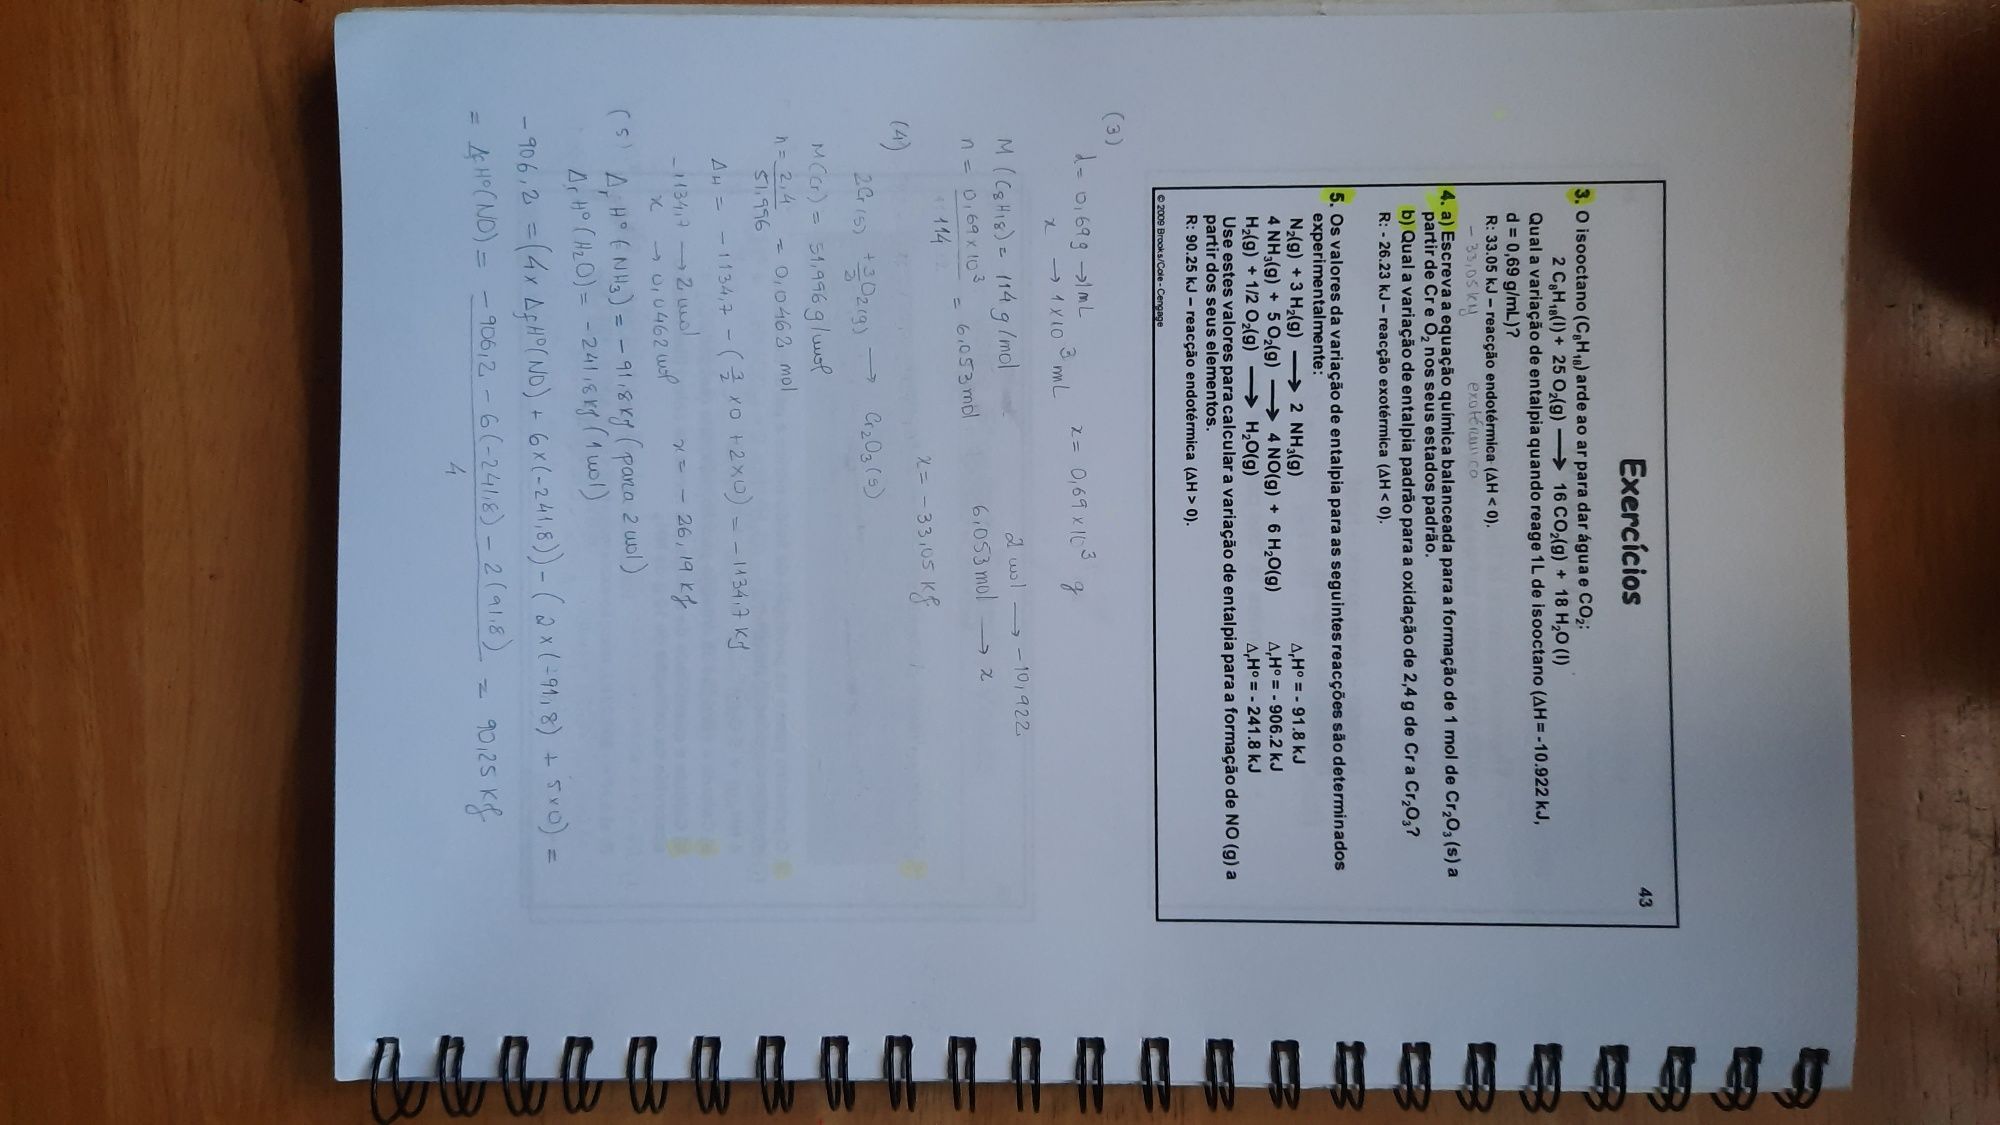 Exercícios
43
3. O isooctano (C₈H₁₈) arde ao ar para dar água e CO₂:
2 C₈H₁₈(l) + 25 O₂(g) ⟶ 16 CO₂(g) + 18 H₂O (l)
Qual a variação de entalpia quando reage 1L de isooctano (ΔH = -10.922 kJ,
d = 0,69 g/mL)?
R: 33.05 kJ – reacção endotérmica (ΔH < 0).
- 33,05 kJ exotérmico
4. a) Escreva a equação química balanceada para a formação de 1 mol de Cr₂O₃ (s) a
partir de Cr e O₂ nos seus estados padrão.
b) Qual a variação de entalpia padrão para a oxidação de 2,4 g de Cr a Cr₂O₃?
R: - 26.23 kJ – reacção exotérmica (ΔH < 0).
5. Os valores da variação de entalpia para as seguintes reacções são determinados
experimentalmente:
N₂(g) + 3 H₂(g) ⟶ 2 NH₃(g) ΔᵣHº = - 91.8 kJ
4 NH₃(g) + 5 O₂(g) ⟶ 4 NO(g) + 6 H₂O(g) ΔᵣHº = - 906.2 kJ
H₂(g) + 1/2 O₂(g) ⟶ H₂O(g) ΔᵣHº = - 241.8 kJ
Use estes valores para calcular a variação de entalpia para a formação de NO (g) a
partir dos seus elementos.
R: 90.25 kJ – reacção endotérmica (ΔH > 0).
© 2009 Brooks/Cole - Cengage
(3)
d = 0,69g → 1mL
x → 1 x 10³ mL x = 0,69 x 10³ g
M (C₈H₁₈) = 114 g/mol 2 mol → -10,922
n = 0,69 x 10³ / 114 = 6,053 mol 6,053 mol → x
x = -33,05 kJ
(4)
2Cr(s) + 3/2 O₂(g) ⟶ Cr₂O₃(s)
M(Cr) = 51,996 g/mol
n = 2,4 / 51,996 = 0,0462 mol
ΔH = -1134,7 - (3/2 x 0 + 2 x 0) = -1134,7 kJ
-1134,7 → 2 mol
x → 0,0462 mol x = - 26,19 kJ
(5) ΔᵣHº (NH₃) = - 91,8 kJ (para 2 mol)
ΔᵣHº (H₂O) = -241,8 kJ (1 mol)
-906,2 = (4 x ΔfHº(NO) + 6 x (-241,8)) - (2 x (-91,8) + 5 x 0) =
= ΔfHº(NO) = -906,2 - 6(-241,8) - 2(91,8) / 4 = 90,25 kJ